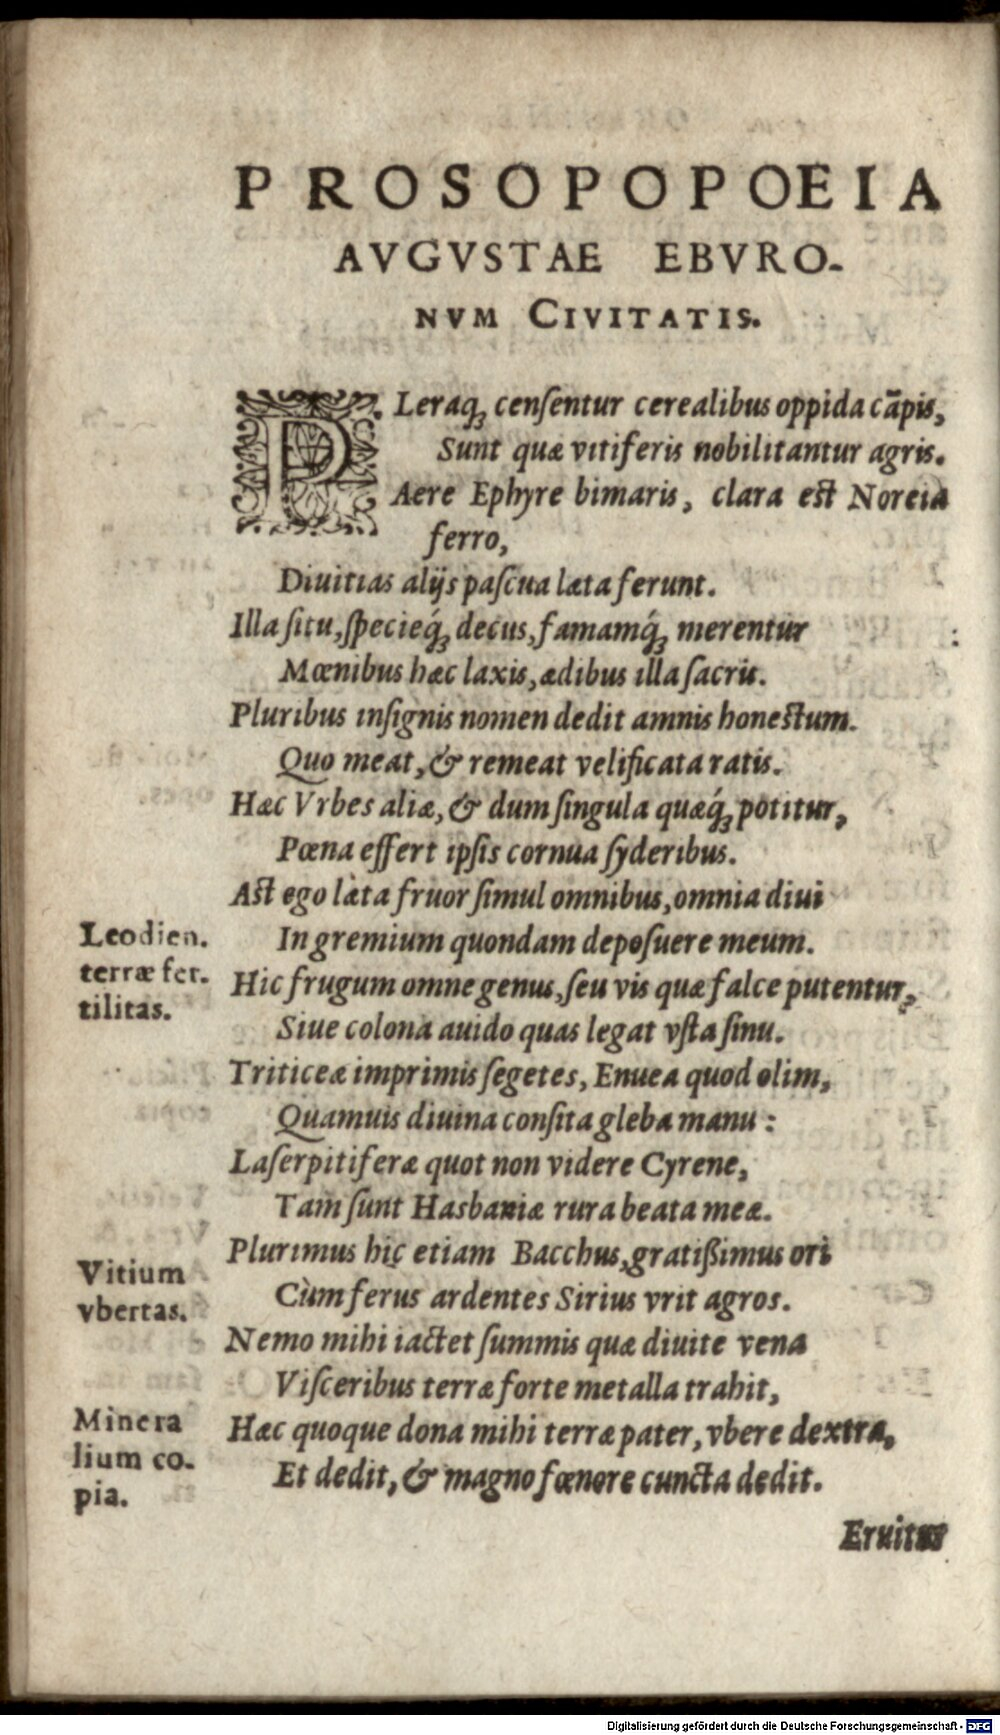 PROSOPOPOEIA
AVGVSTAE EBVRO-
NVM CIVITATIS.
PLeraq; censentur cerealibus oppida cãpis,
Sunt quæ vitiferis nobilitantur agris.
Aere Ephyre bimaris, clara est Noreia
ferro,
Diuitias alijs pascua læta ferunt.
Illa situ, specieq́; decus, famamq́; merentur
Mœnibus hæc laxis, ædibus illa sacris.
Pluribus insignis nomen dedit amnis honestum.
Quo meat, & remeat velificata ratis.
Hæc Vrbes aliæ, & dum singula quæq́; potitur,
Pœna effert ipsis cornua syderibus.
Ast ego læta fruor simul omnibus, omnia diui
Leodien.
terræ fer-
tilitas.
In gremium quondam deposuere meum.
Hic frugum omne genus, seu vis quæ falce putentur,
Siue colona auido quas legat vsta sinu.
Triticeæ imprimis segetes, Enuea quod olim,
Quamuis diuina consita gleba manu:
Laserpitiferæ quot non videre Cyrene,
Tam sunt Hasbaniæ rura beata meæ.
Plurimus hic etiam Bacchus, gratißimus ori
Vitium
vbertas.
Cùm ferus ardentes Sirius vrit agros.
Nemo mihi iactet summis quæ diuite vena
Visceribus terræ forte metalla trahit,
Minera
lium co-
pia.
Hæc quoque dona mihi terræ pater, vbere dextra,
Et dedit, & magno fœnore cuncta dedit.
Eruitur
Digitalisierung gefördert durch die Deutsche Forschungsgemeinschaft - DFG